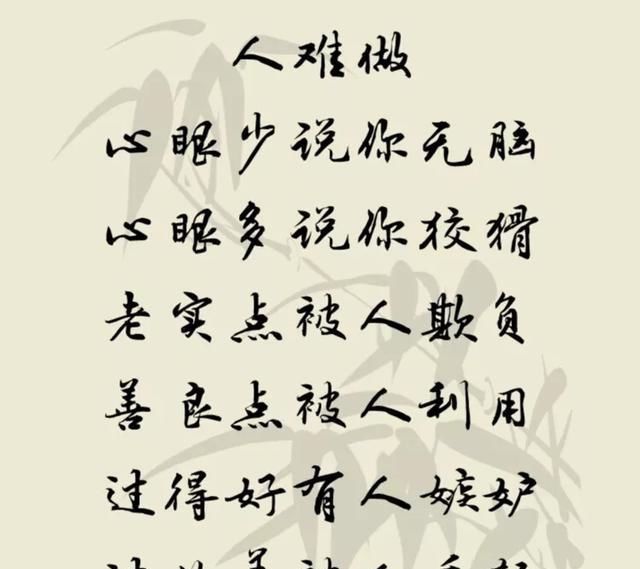 人难做
心眼少说你无脑
心眼多说你狡猾
老实点被人欺负
善良点被人利用
过得好有人嫉妒